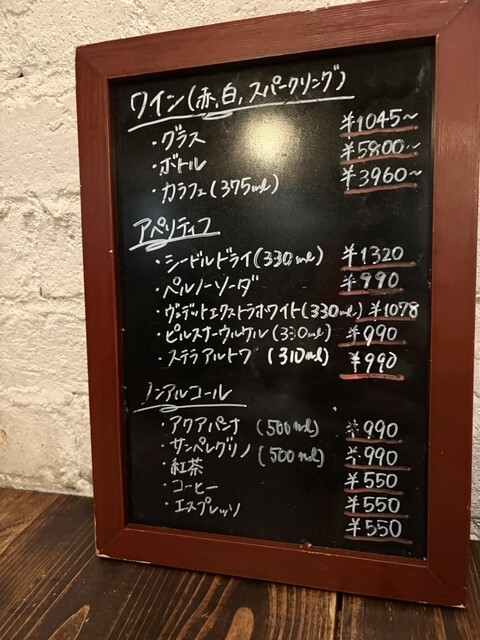 ワイン(赤,白,スパークリング)
・グラス ¥1045~
・ボトル ¥5800~
・カラフェ(375ml) ¥3960~
アペリティフ
・シードルドライ(330ml) ¥1320
・ペルノーソーダ ¥990
・ヴェデットエクストラホワイト(330ml) ¥1078
・ピルスナーウルケル(330ml) ¥990
・ステラアルトワ (310ml) ¥990
ノンアルコール
・アクアパンナ (500ml) ¥990
・サンペレグリノ (500ml) ¥990
・紅茶 ¥550
・コーヒー ¥550
・エスプレッソ ¥550